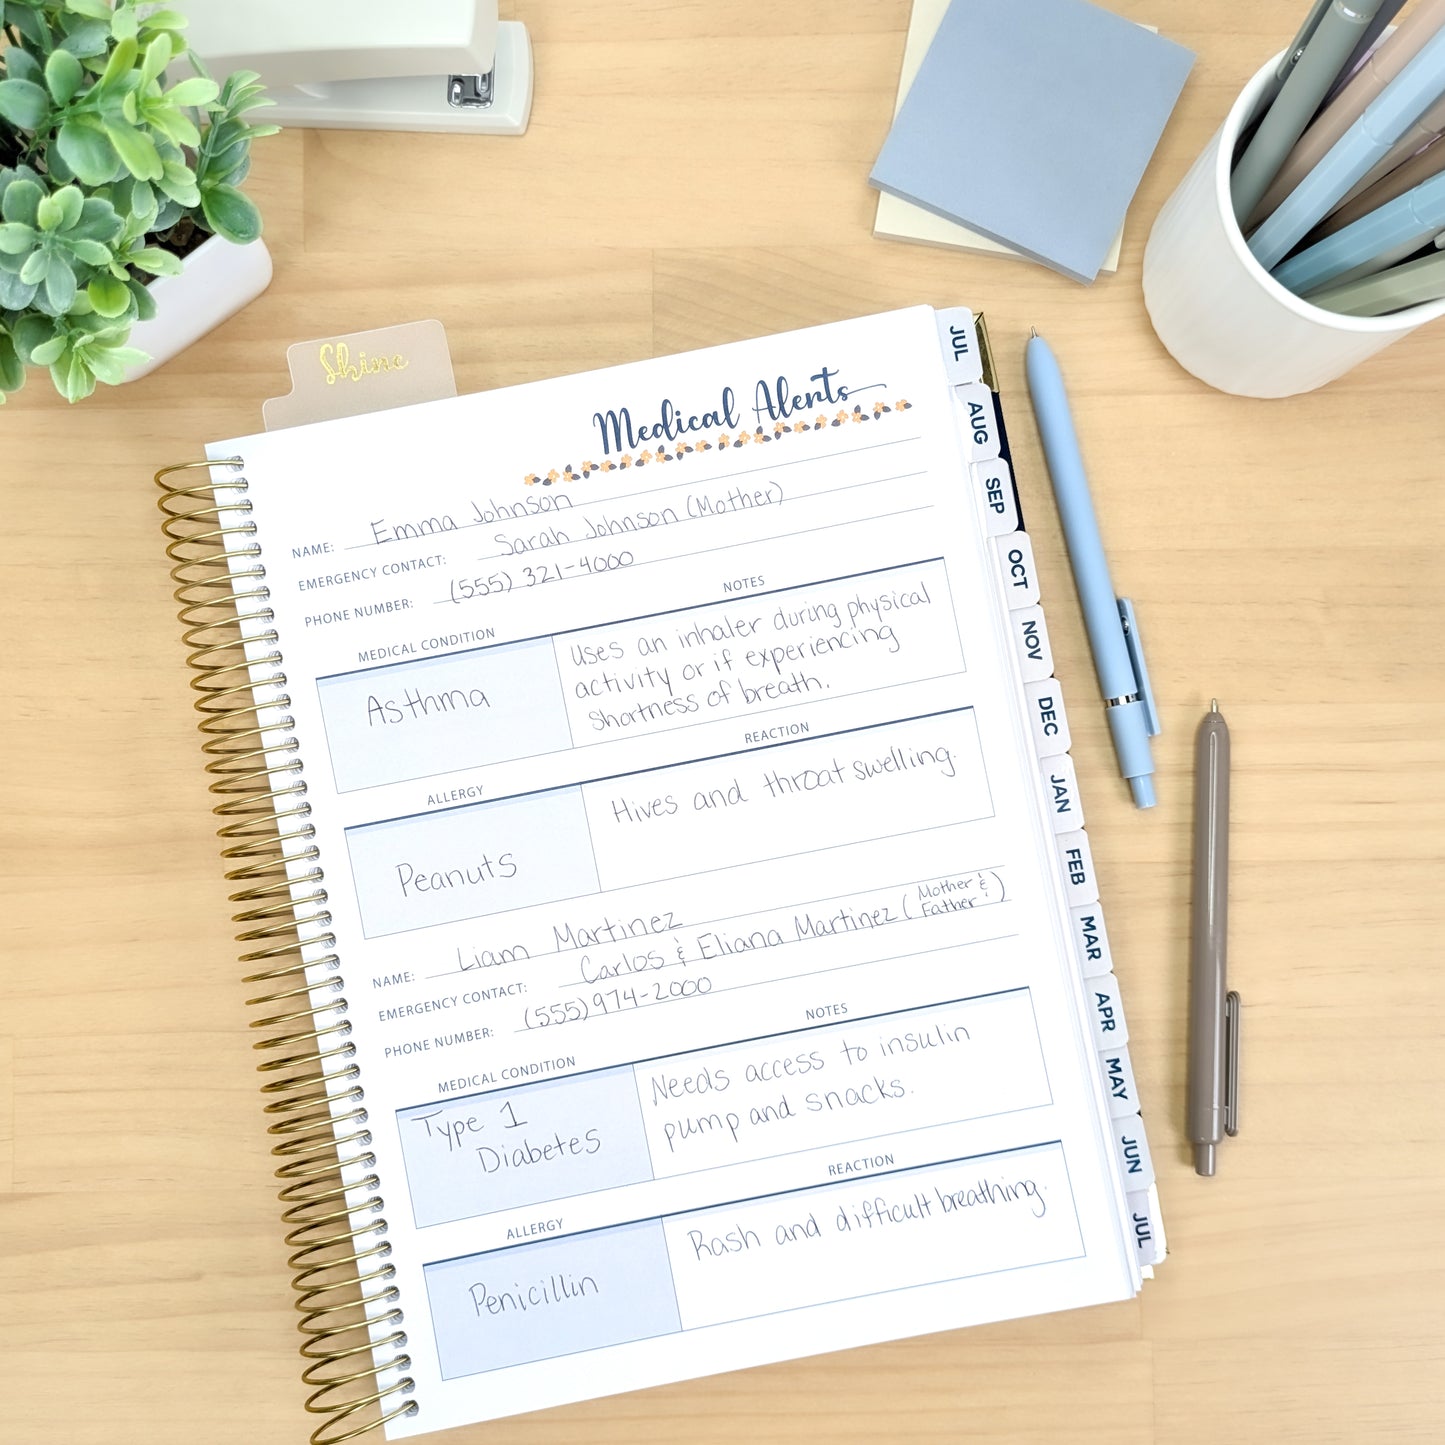 Shine
Medical Alerts
NAME: Emma Johnson
EMERGENCY CONTACT: Sarah Johnson (Mother)
PHONE NUMBER: (555) 321-4000
MEDICAL CONDITION
NOTES
Asthma
Uses an inhaler during physical
activity or if experiencing
shortness of breath.
ALLERGY
REACTION
Peanuts
Hives and throat swelling.
NAME: Liam Martinez
EMERGENCY CONTACT: Carlos & Eliana Martinez (Mother & Father)
PHONE NUMBER: (555) 974-2000
MEDICAL CONDITION
NOTES
Type 1
Diabetes
Needs access to insulin
pump and snacks.
ALLERGY
REACTION
Penicillin
Rash and difficult breathing.
JUL
AUG
SEP
OCT
NOV
DEC
JAN
FEB
MAR
APR
MAY
JUN
JUL